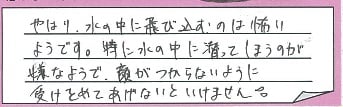 やはり、水の中に飛び込むのは怖い
ようです。特に水の中に潜ってしまうのが
嫌なようで、顔がつからないように
受けとめてあげないといけません。